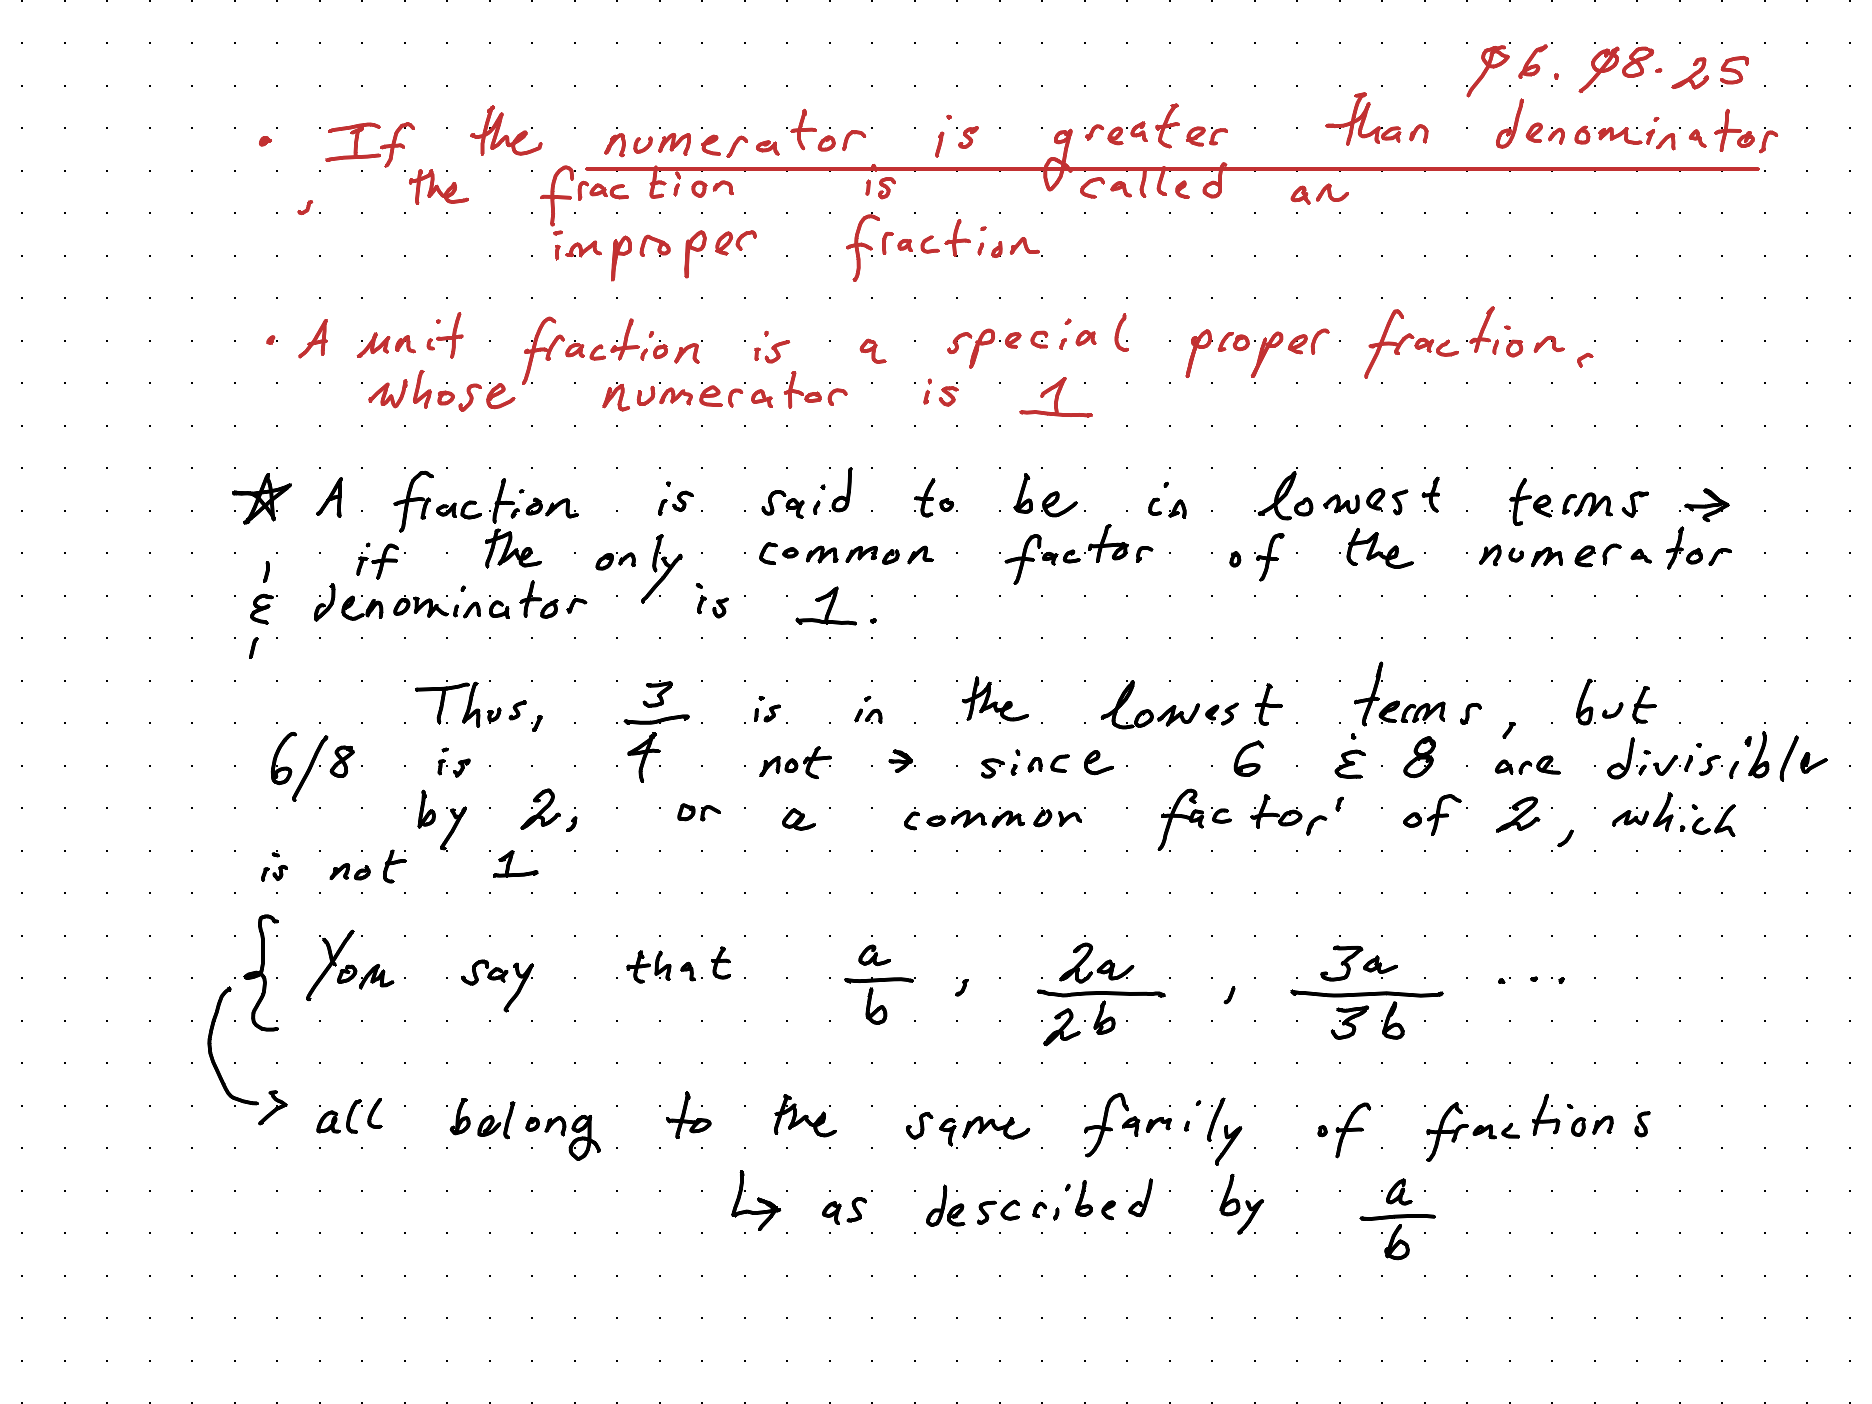 06.08.25
• If the numerator is greater than denominator
, the fraction is called an
improper fraction
• A unit fraction is a special proper fraction,
whose numerator is 1
☆ A fraction is said to be in lowest terms →
if the only common factor of the numerator
& denominator is 1.
Thus, 3/4 is in the lowest terms, but
6/8 is not → since 6 & 8 are divisible
by 2, or a common factor of 2, which
is not 1
{ You say that a/b, 2a/2b, 3a/3b ...
→ all belong to the same family of fractions
↳ as described by a/b